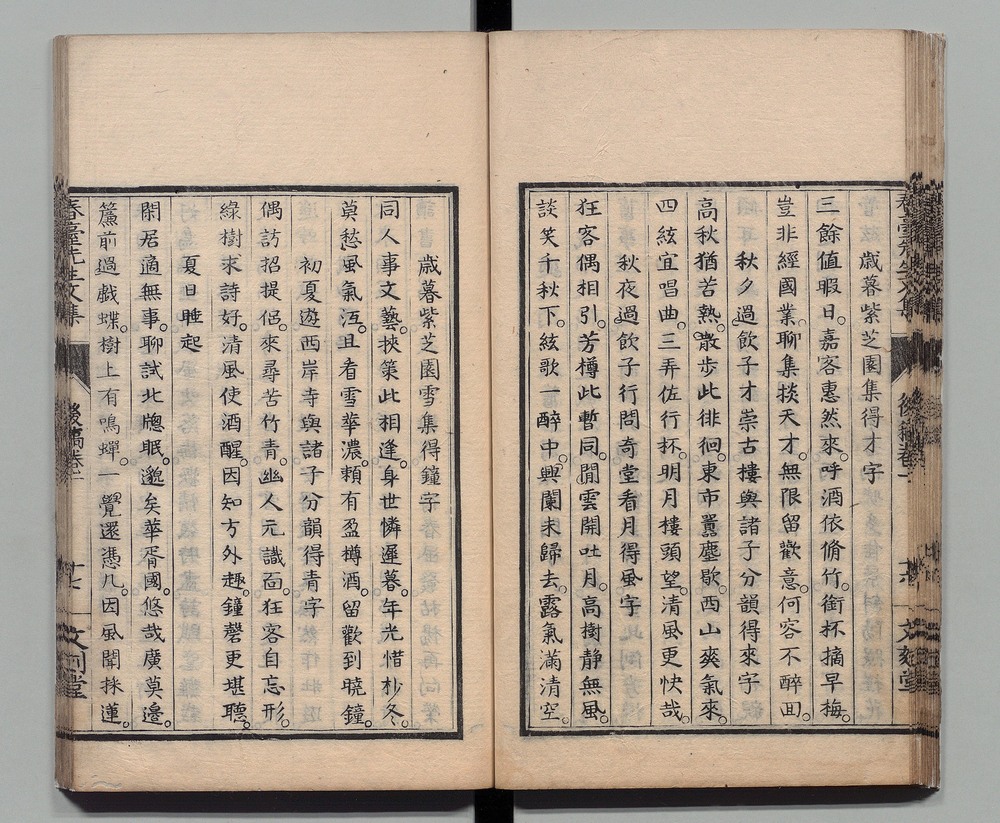 歳暮紫芝園集得才字
三餘值暇日。嘉客惠然來。呼酒依脩竹。銜杯摘早梅。
豈非經國業。聊集掞天才。無限留歡意。何容不醉回。
秋夕過飲子才崇古樓與諸子分韻得來字
高秋猶苦熱。散步此徘徊。東市囂塵歇。西山爽氣來。
四絃宜唱曲。三弄佐行杯。明月樓頭望。清風更快哉。
秋夜過飲子行問奇堂看月得風字
狂客偶相引。芳樽此暫同。閒雲開吐月。高樹静無風。
談笑千秋下。絃歌一醉中。興闌未歸去。露氣滿清空。
歳暮紫芝園雪集得鐘字
同人事文藝。挾策此相逢。身世憐遲暮。年光惜杪冬。
莫愁風氣沍。且看雪華濃。頼有盈樽酒。留歡到曉鐘。
初夏遊西岸寺與諸子分韻得青字
偶訪招提侶。來尋苦竹青。幽人元識面。狂客自忘形。
綠樹求詩好。清風使酒醒。因知方外趣。鐘磬更堪聽。
夏日睡起
閑居適無事。聊試北牕眠。邈矣華胥國。悠哉廣莫邊。
簾前過戲蝶。樹上有鳴蟬。一覺還憑几。因風聞採蓮。
春臺先生文集
後稿卷一